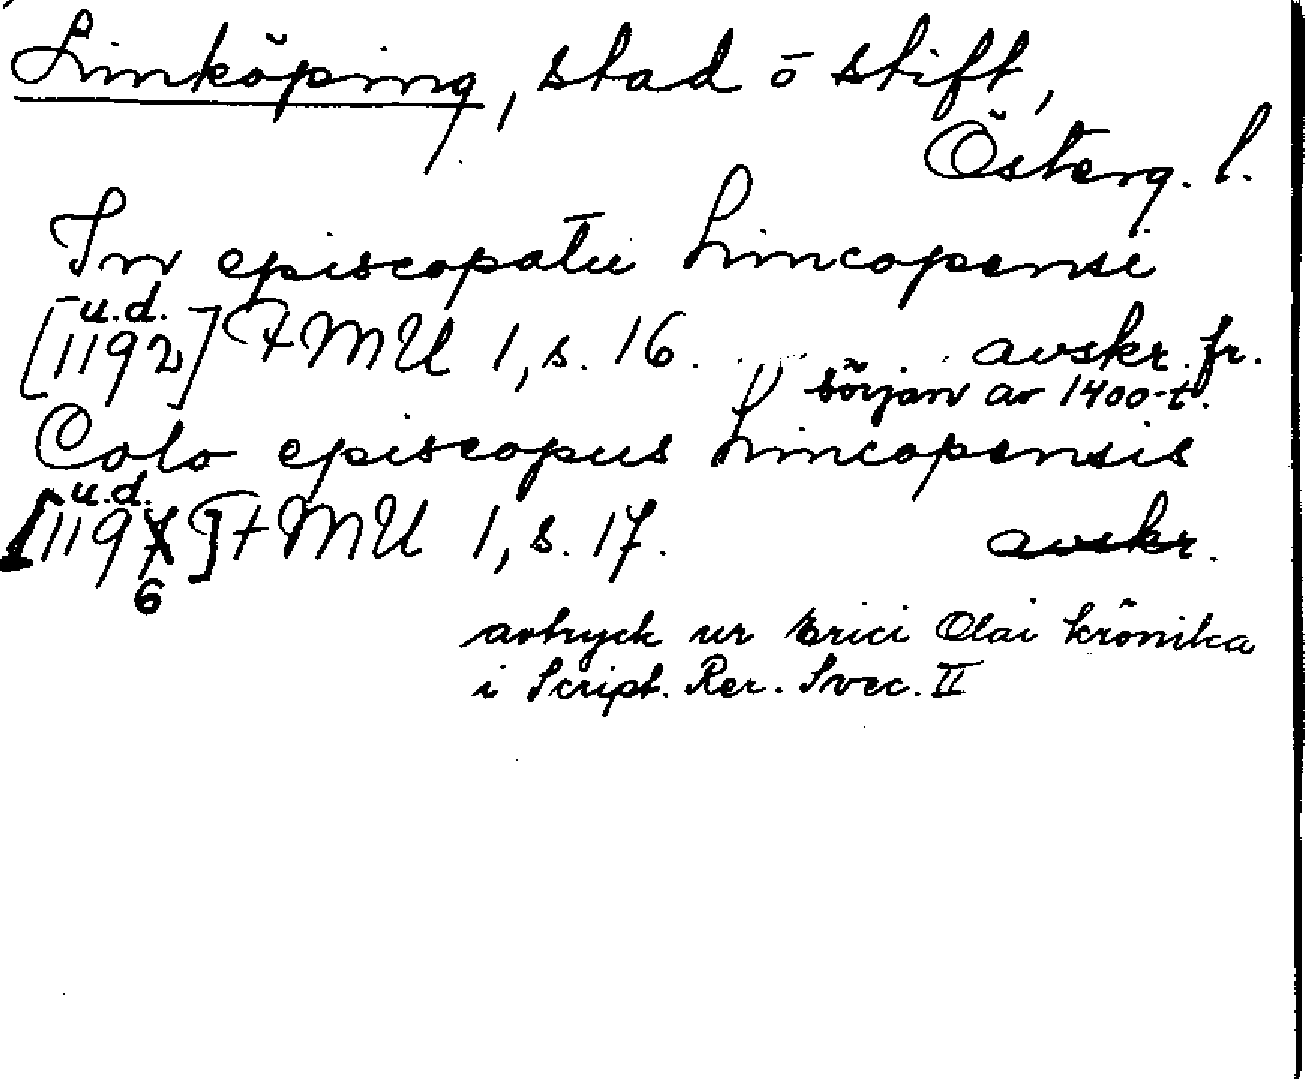 Linköping, stad o stift,
Österg. l.
In episcopatu Lincopensi
u.d.
[1192] FMU 1, s. 16. avskr. fr.
början av 1400-t.
Colo episcopus Lincopensis
u.d.
[1197] FMU 1, s. 17. avskr.
6
avtryck ur Erici Olai krönika
i Script. Rer. Svec. II